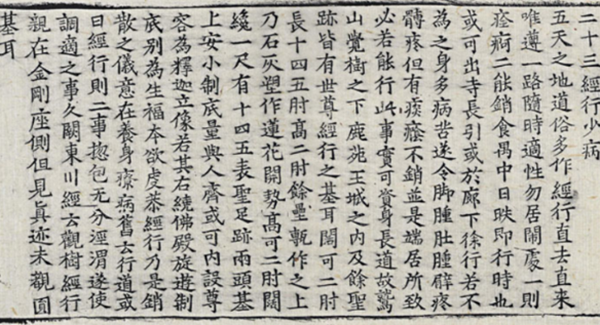 二十三經行小病
五天之地道俗多作經行直去直來
唯遵一路隨時適性勿居閙處一則
痊痾二能銷食禺中日昳即行時也
或可出寺長引或於廊下徐行若不
為之身多病苦遂令脚腫肚腫臂疼
髆疼但有痰癊不銷並是端居所致
必若能行此事實可資身長道故鷲
山覺樹之下鹿苑王城之內及餘聖
跡皆有世尊經行之基耳闊可二肘
長十四五肘高二肘餘壘甎作之上
乃石灰塑作蓮花開勢高可二肘闊
纔一尺有十四五表聖足跡兩頭基
上安小制底量與人齊或可內設尊
容為釋迦立像若其右繞佛殿旋遊制
底別為生福本欲虔恭經行乃是銷
散之儀意在養身療病舊云行道或
曰經行則二事揔包无分涇渭遂使
調適之事久闕東川經云觀樹經行
親在金剛座側但見眞迹未觀圓
基耳